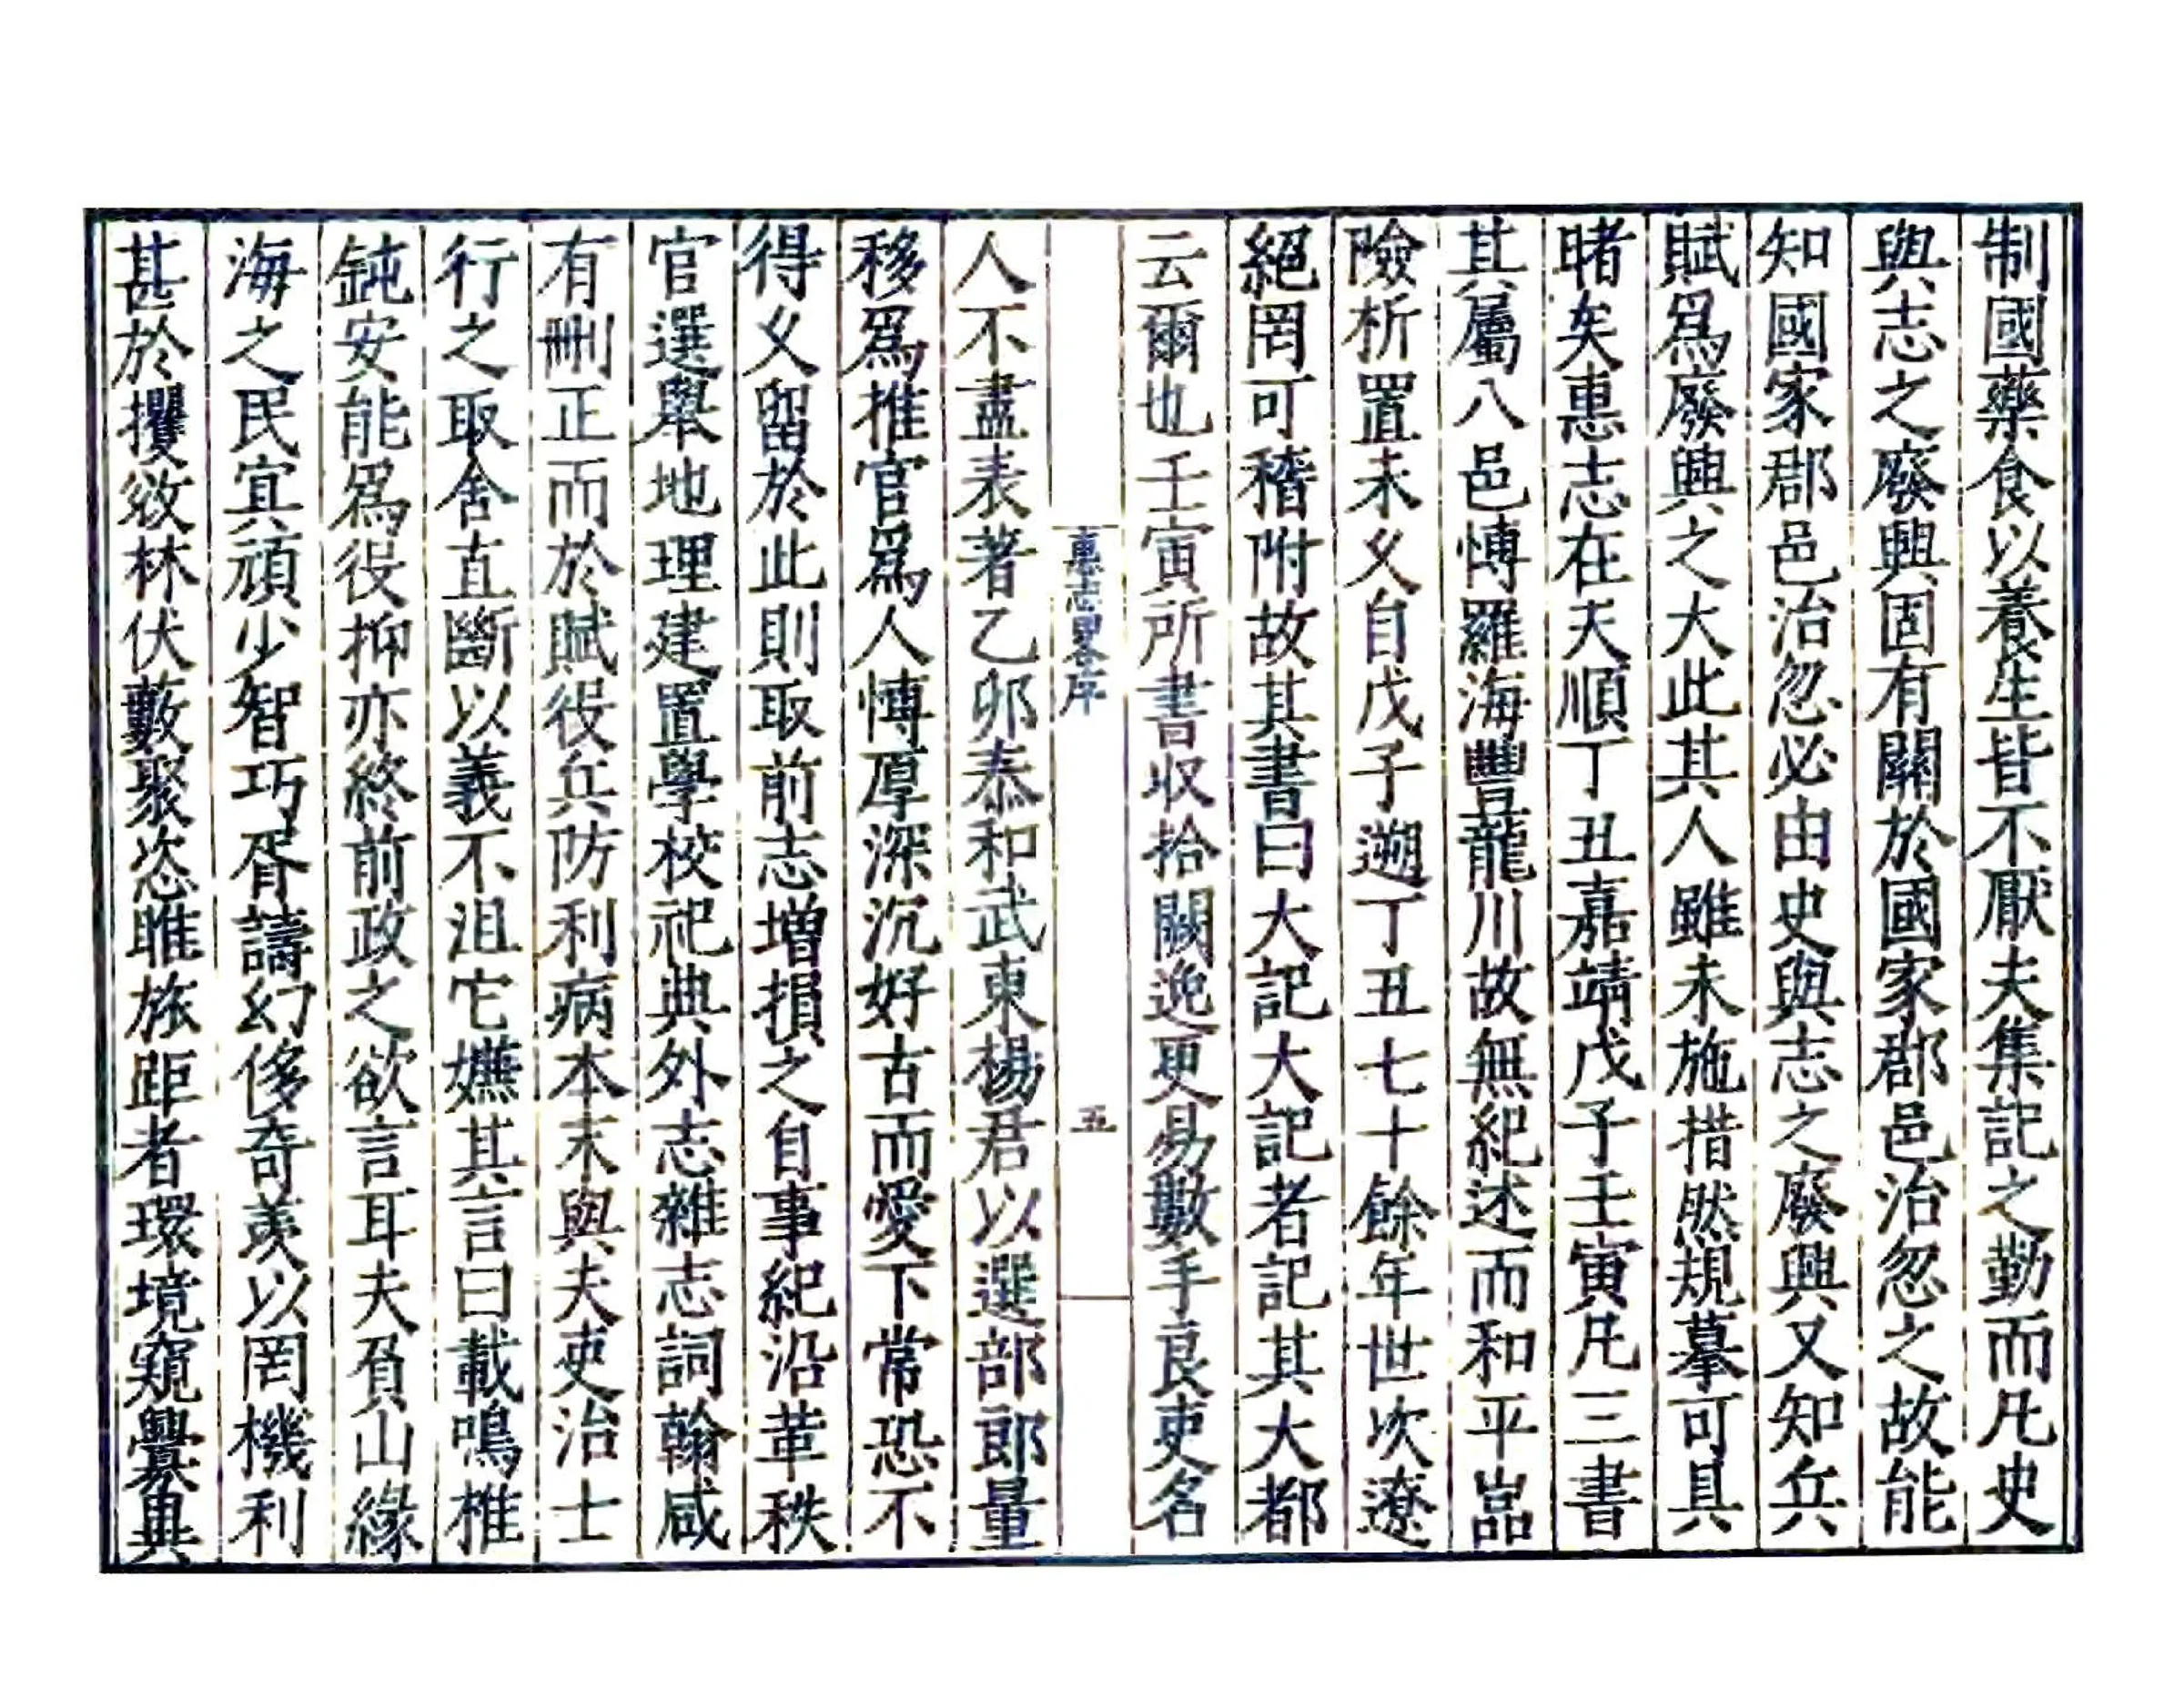 制國藥食以養生皆不厭夫集記之勤而凡史
與志之廢興固有關於國家郡邑治忽之故能
知國家郡邑治忽必由史與志之廢興又知兵
賦爲廢興之大此其人雖未施措然規摹可具
睹矣惠志在天順丁丑嘉靖戊子壬寅凡三書
其屬八邑博羅海豐龍川故無紀述而和平嵓
險析置未乂自戊子遡丁丑七十餘年世次遼
絕罔可稽附故其書曰大記大記者記其大都
云爾也壬寅所書収拾闕逸更易數手良吏名
惠志畧序
五
人不盡表著乙卯泰和武東楊君以選部郎量
移爲推官爲人博厚深沉好古而愛下常恐不
得乂留於此則取前志增損之自事紀沿革秩
官選舉地理建置學校祀典外志雜志詞翰咸
有刪正而於賦役兵防利病本末與夫吏治士
行之取舍直斷以義不沮它嫵其言曰載鳴椎
鈍安能爲役抑亦終前政之欲言耳夫負山緣
海之民宜頑少智巧胥譸幻侈奇羨以罔機利
甚於攫敚林伏藪聚恣睢旅距者環境窺釁典